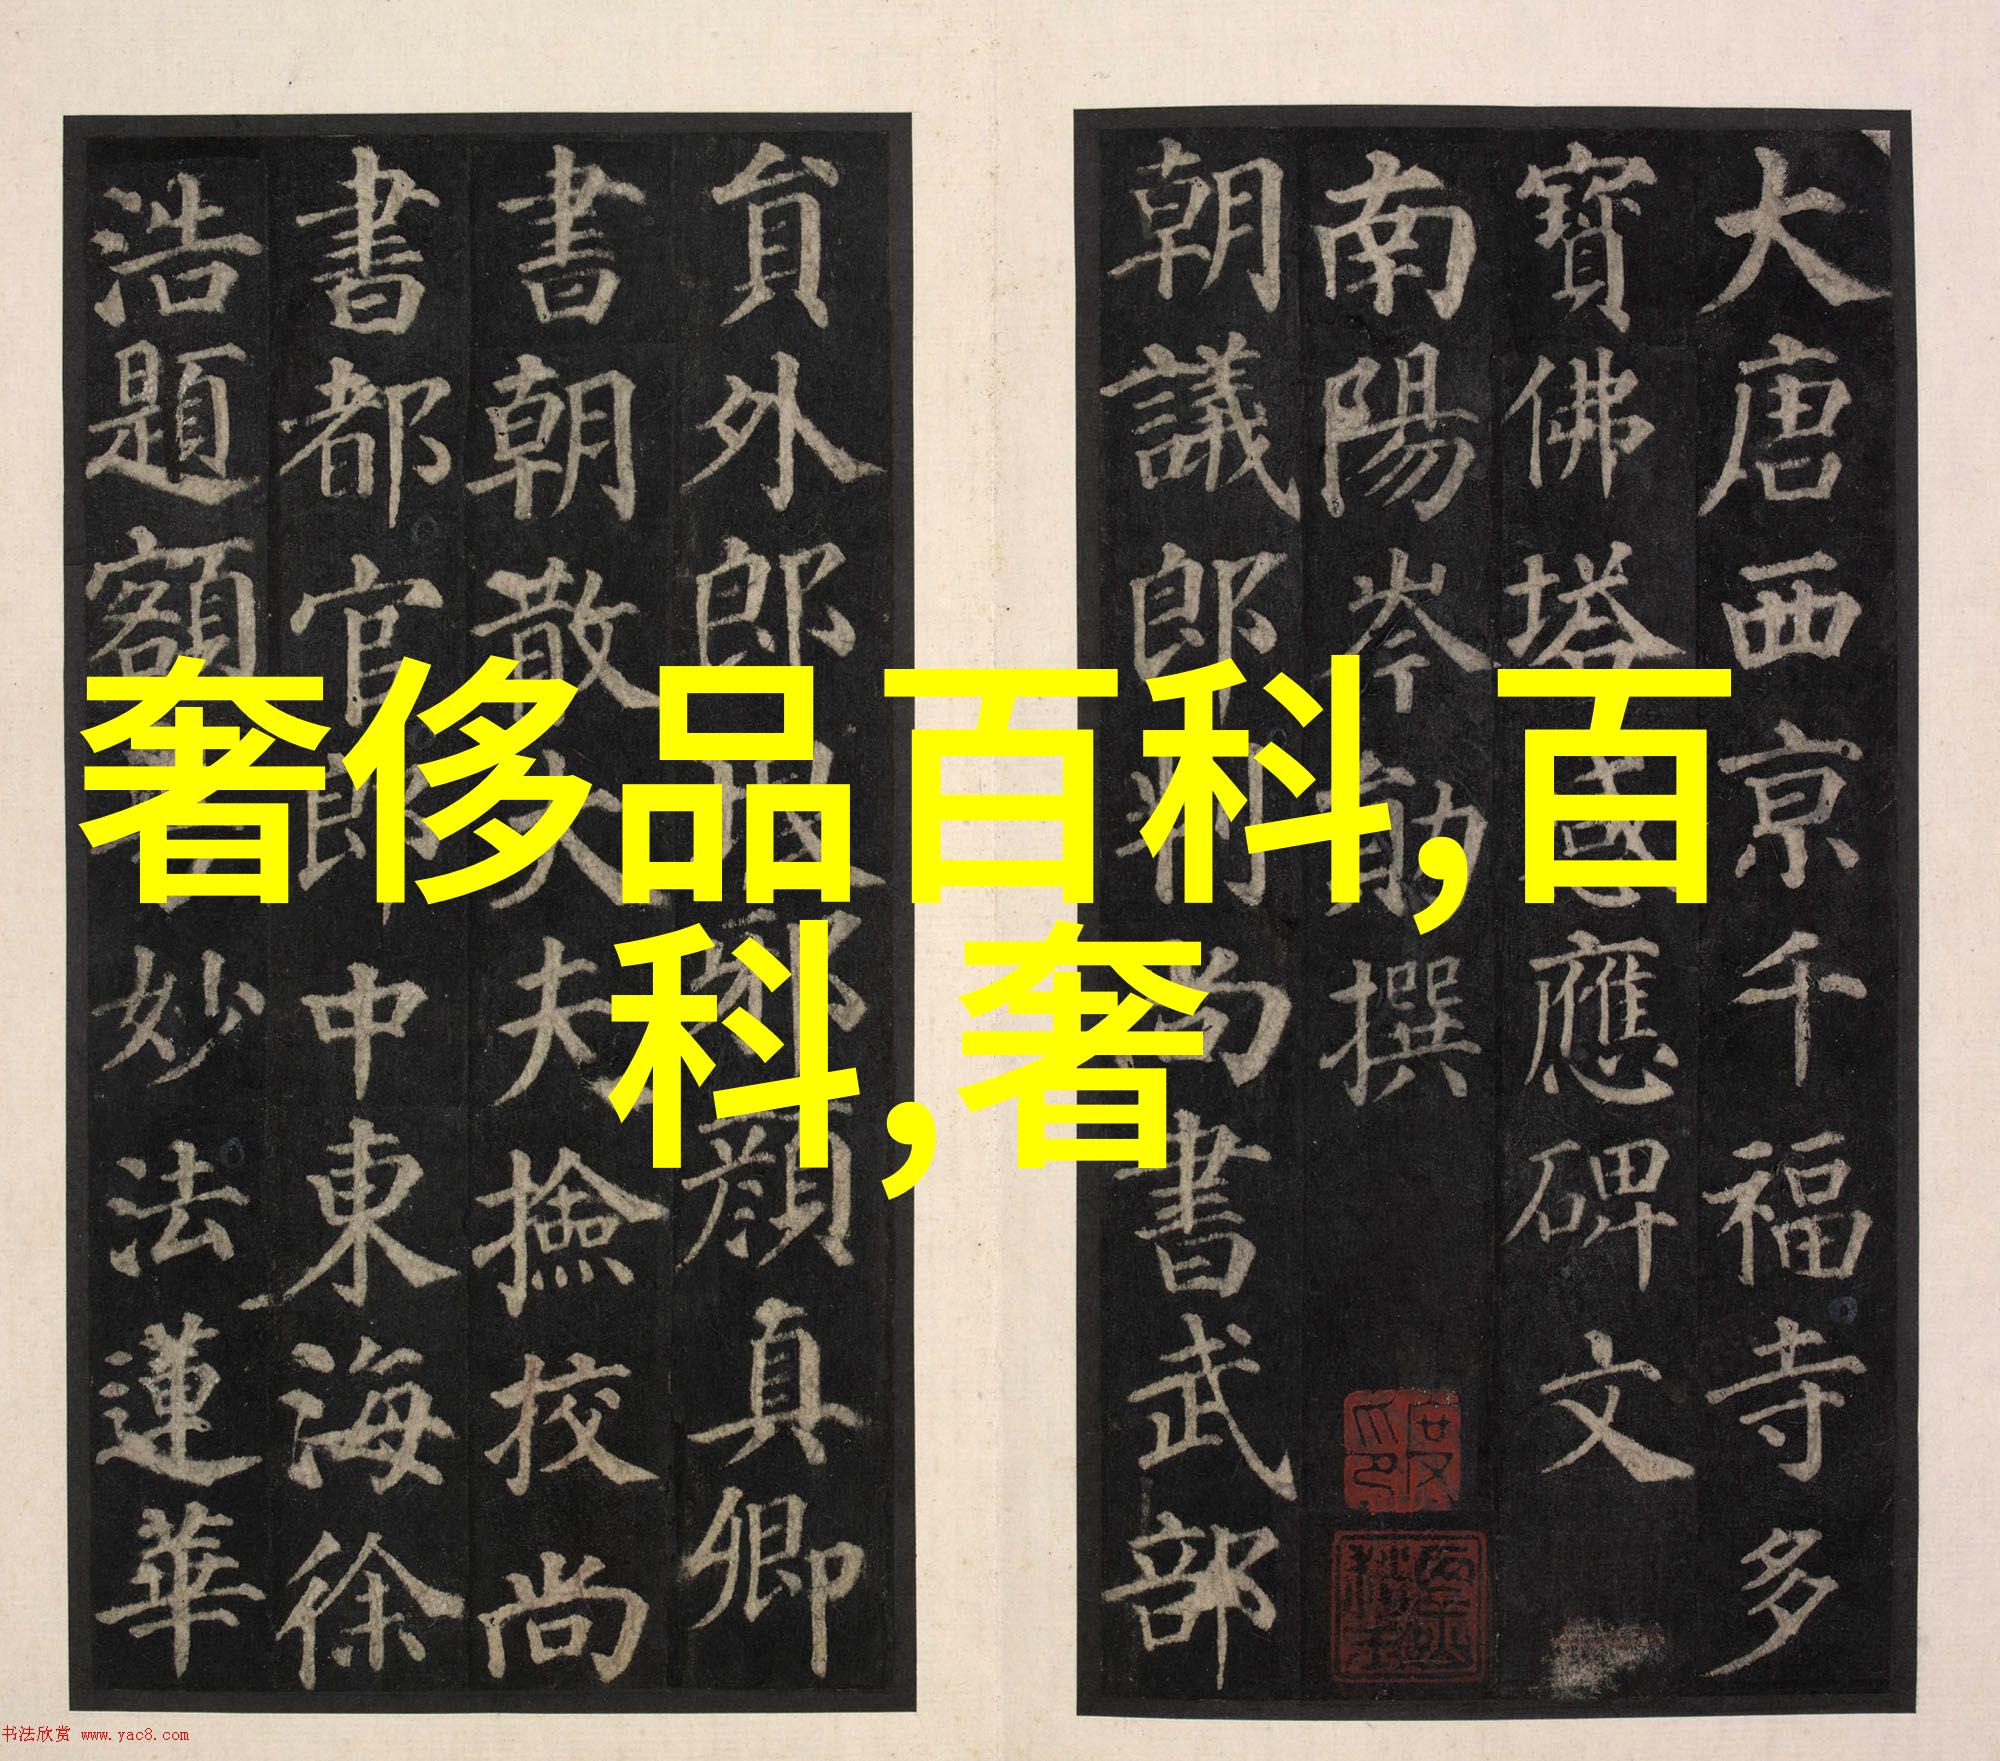 大唐西京千福寺多
寶佛塔感應碑文
南陽岑勛撰
朝議郎判尚書武部
員外郎琅邪顏真卿
書朝散大夫撿校尚
書都官郎中東海徐
浩題額
妙法蓮華
奢侈品百科,百
科,奢
书法欣赏 www.yac8.com